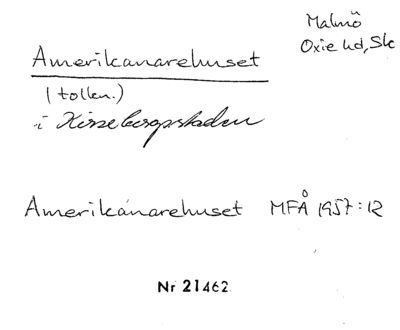 Malmö
Oxie hd, Sk
Amerikanarehuset
(tolkn.)
i Kirsebergsstaden
Amerikanarehuset MFÅ 1957:12
Nr 21462